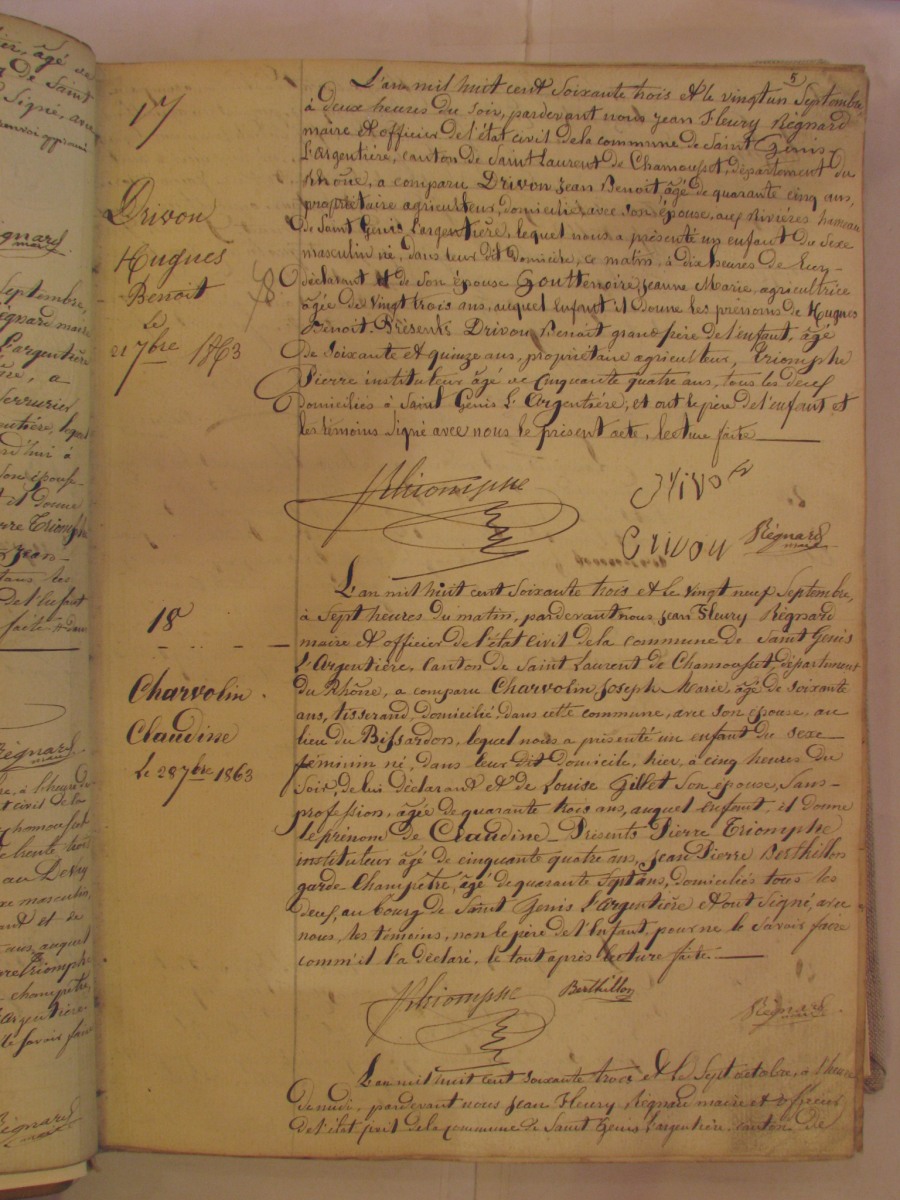 5
17
Drivon
Hugues
Benoit
Le
21 7bre 1863
L'an mil huit cent Soixante trois et le vingt un Septembre
à deux heures du soir, pardevant nous Jean Fleury Régnard
maire et officier de l'état civil de la commune de Saint Genis-
L'Argentière, canton de Saint Laurent de Chamousset, département du
Rhône, a comparu Drivon Jean Benoit, âgé de quarante cinq ans,
propriétaire agriculteur, domicilié, avec son épouse, aux rivières hameau
de Saint Genis L'argentière, lequel nous a présenté un enfant du Sexe
masculin né, dans leur dit domicile, ce matin, à dix heures de luy-
déclarant et de son épouse Gouttenoire Jeanne Marie, agricultrice
âgée de vingt trois ans, auquel enfant il donne les prénoms de Hugues
Benoit. Présents Drivon Benoit grand-père de l'enfant, âgé
de Soixante et quinze ans, propriétaire agriculteur, Triomphe
Pierre instituteur âgé de Cinquante quatre ans, tous les deux
domiciliés à Saint Genis L'Argentière, et ont le père de l'enfant et
les témoins Signé avec nous le présent acte, lecture faite
Triomphe
Drivon
Régnard
maire
18
Charvolin
Claudine
Le 28 7bre 1863
L'an mil huit cent Soixante trois et le vingt neuf Septembre,
à Sept heures du matin, pardevant nous, Jean Fleury Régnard
maire et officier de l'état civil de la commune de Saint Genis
L'Argentière, Canton de Saint Laurent de Chamousset, département
du Rhône, a comparu Charvolin Joseph Marie, âgé de soixante
ans, tisserand, domicilié dans cette commune, avec son épouse, au
lieu du Bissardon, lequel nous a présenté un enfant du sexe
féminin né, dans leur dit domicile, hier, à cinq heures du
Soir, de lui déclarant et de Louise Gillet Son épouse, Sans-
profession, âgée de quarante trois ans, auquel Enfant, il donne
le prénom de Claudine. Présents Pierre Triomphe
instituteur âgé de cinquante quatre ans, Jean Pierre Berthillon
garde Champêtre, âgé de quarante Sept ans, domiciliés tous les
deux, au bourg de Saint Genis L'Argentière et ont Signé, avec
nous, les témoins, non le père de l'Enfant, pour ne le Savoir faire
comm'il l'a déclaré, le tout après lecture faite.
Triomphe
Berthillon
Régnard
maire
L'an mil huit cent soixante trois et le Sept octobre, à l'heure
de midi, pardevant nous Jean Fleury Régnard maire et officier
de l'état civil de la commune de Saint Genis L'argentière canton de